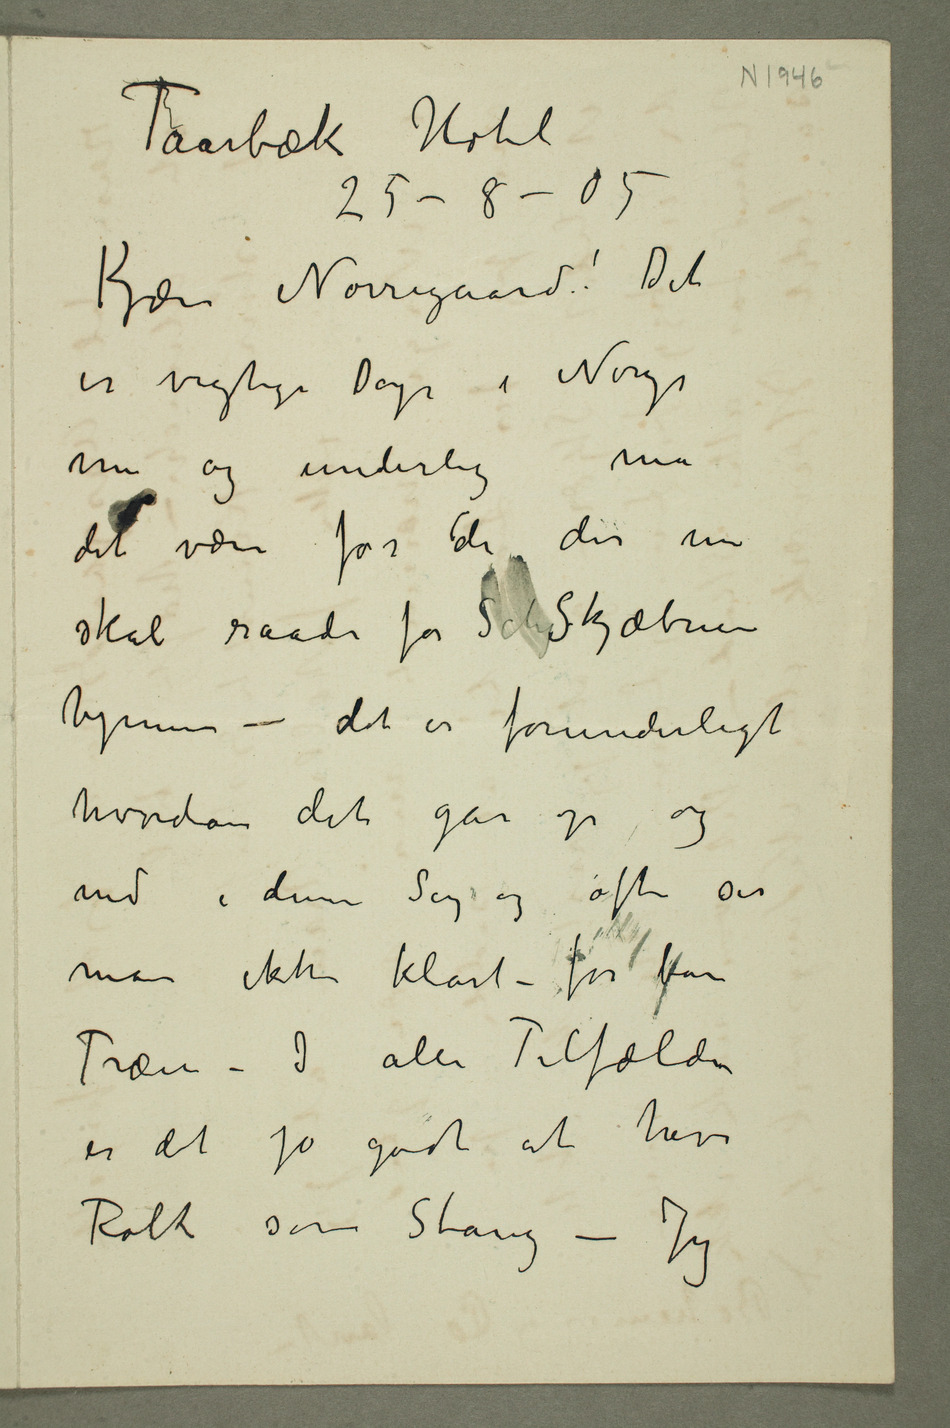 N1946
Taarbæk Hotel
25 – 8 – 05
Kjære Nørregaard! Det
er vigtige Dage i Norge
nu og underlig ma
det være for de der nu
skal raade for Skjæbnen
hjemme – det er forunderligt
hvordan det gar op og
ned i denne Sag og ofte ser
man ikke klart – for bare
Træer – I alle Tilfælde
er det jo godt at have
Folk som Stang – Jeg